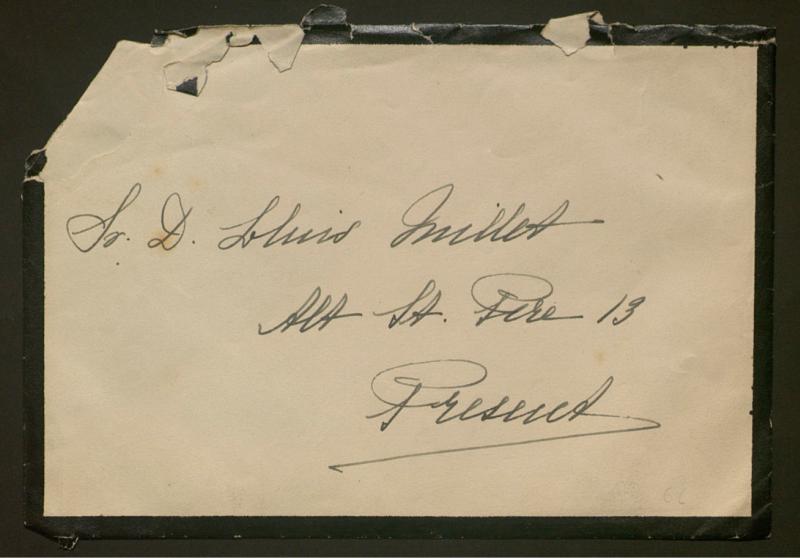 Sr. D. Lluis Millet
Alt St. Pere 13
Present